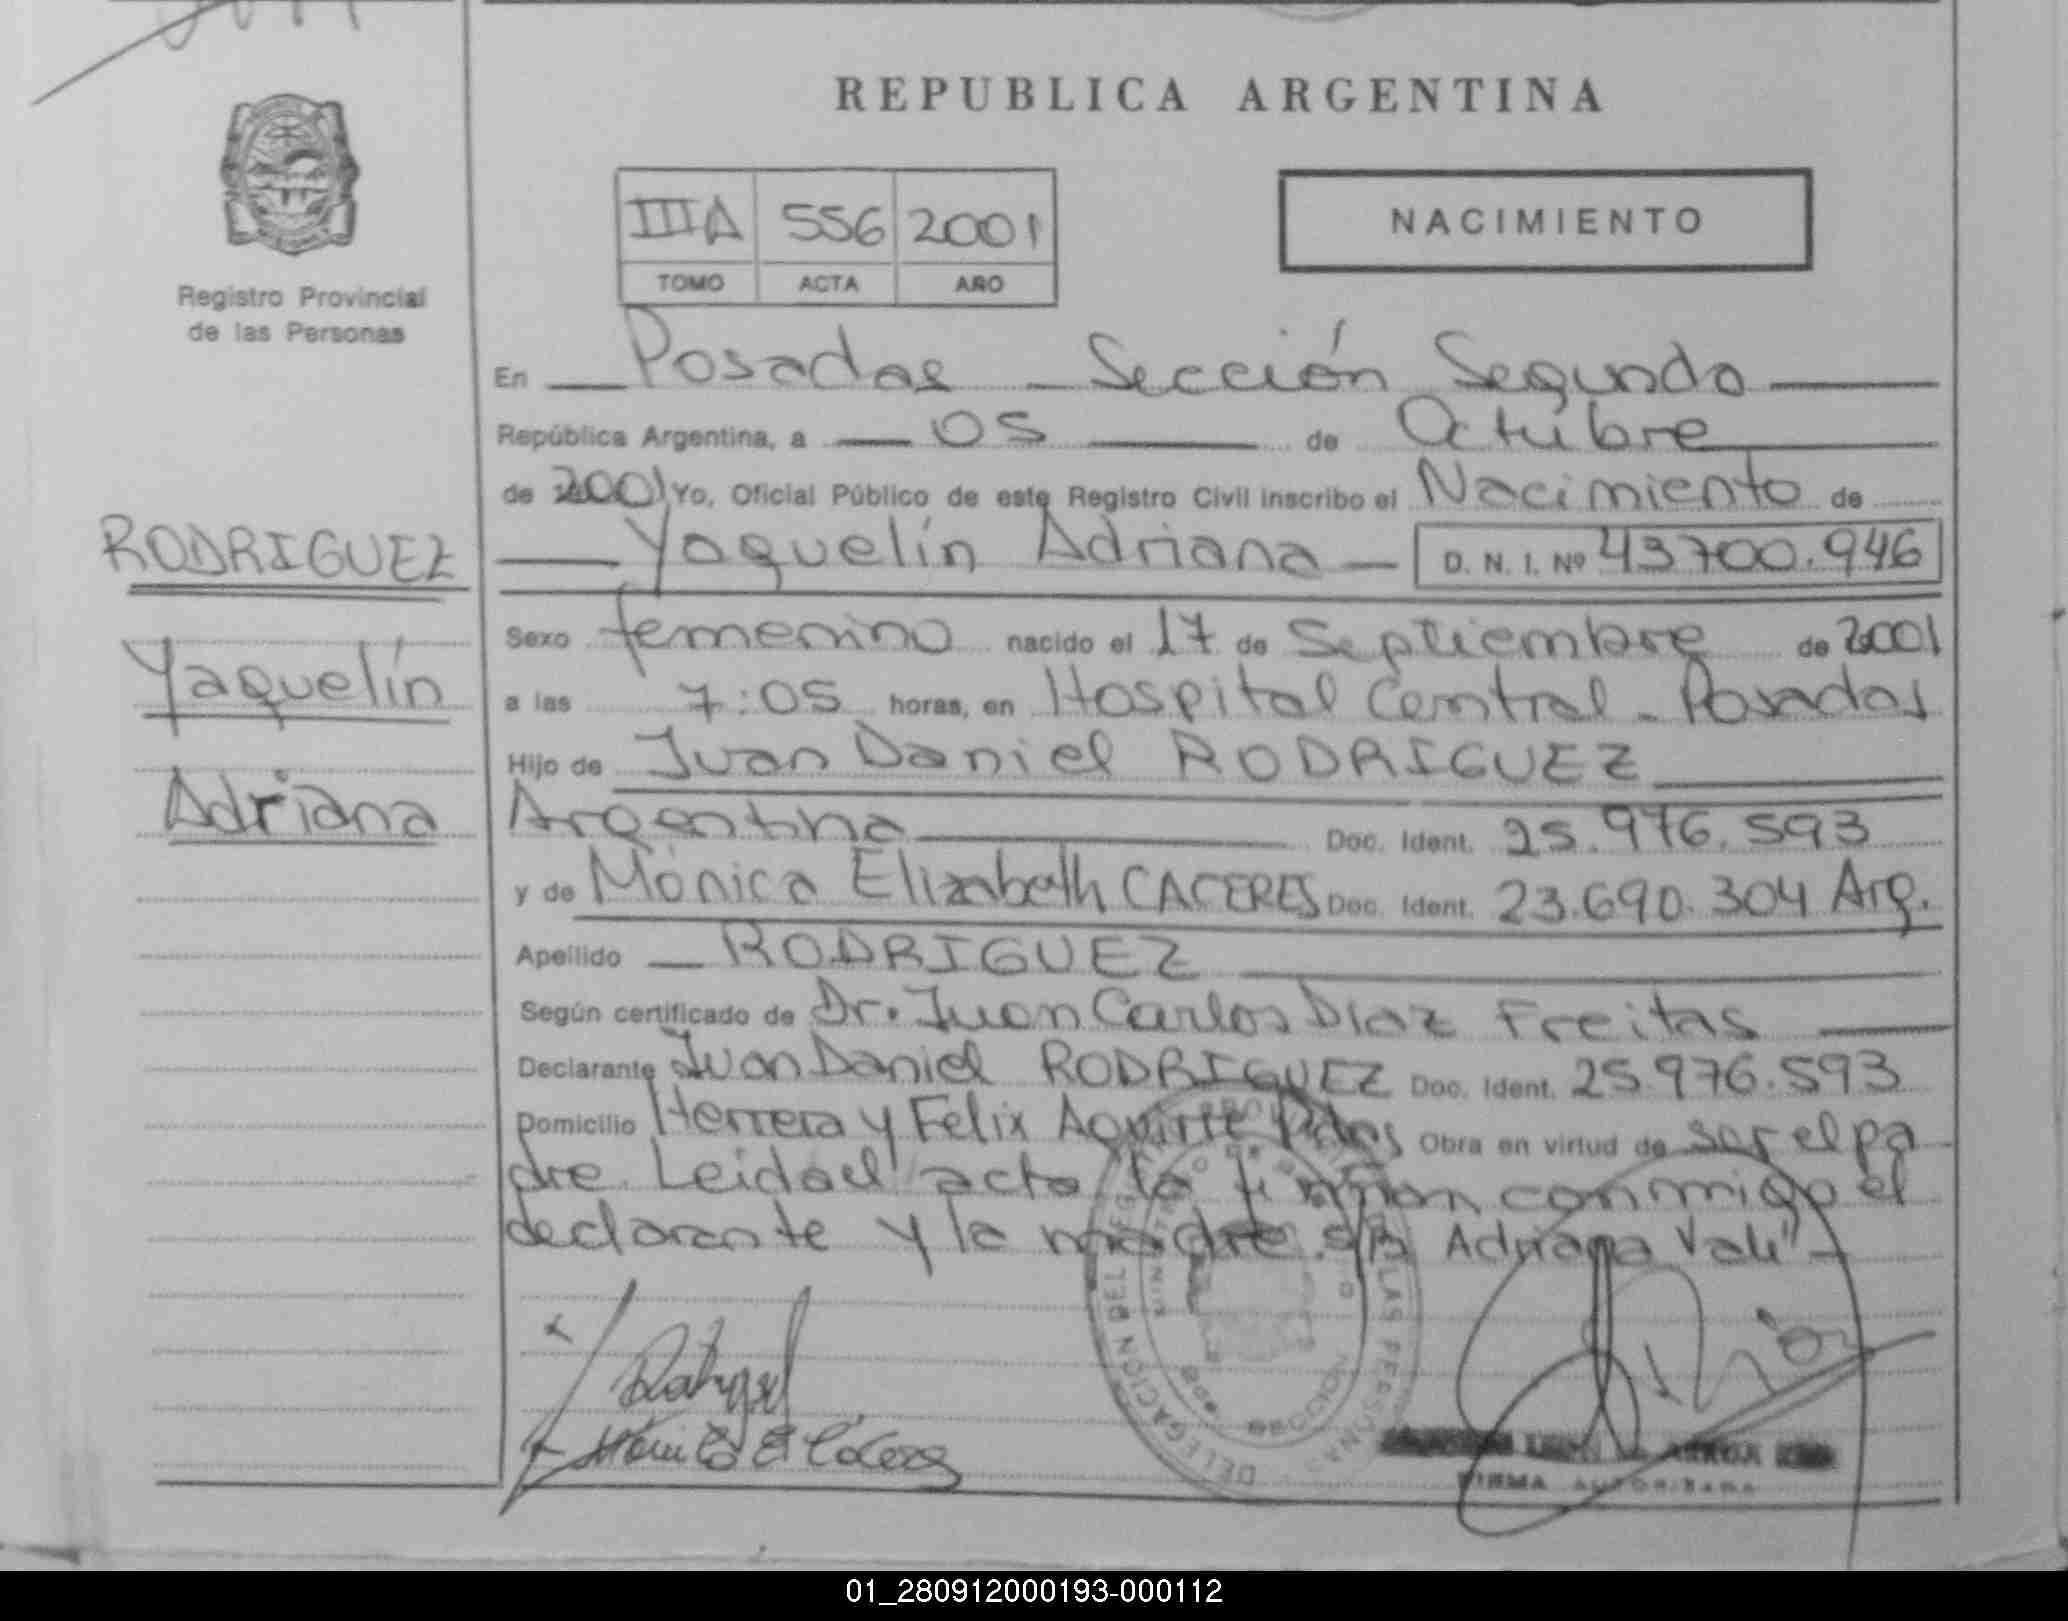 REPUBLICA ARGENTINA
IIIA 556 2001
TOMO ACTA AÑO
NACIMIENTO
Registro Provincial
de las Personas
RODRIGUEZ
Yaquelín
Adriana
En Posadas Sección Segunda
República Argentina, a 05 de Octubre
de 2001 Yo, Oficial Público de este Registro Civil inscribo el Nacimiento de
Yaquelín Adriana D. N. I. Nº 43700.946
Sexo femenino nacido el 17 de Septiembre de 2001
a las 7:05 horas, en Hospital Central - Posadas
Hijo de Juan Daniel RODRIGUEZ
Argentina Doc. Ident. 25.976.593
y de Mónica Elizabeth CACERES Doc. Ident. 23.690.304 Arg.
Apellido RODRIGUEZ
Según certificado de Dr. Juan Carlos Diaz Freitas
Declarante Juan Daniel RODRIGUEZ Doc. Ident. 25.976.593
Domicilio Herrera y Felix Aguirre Pdas Obra en virtud de ser el pa
dre. Leida el acta la firman conmigo el
declarante y la madre. s/B Adriana Vale"
DELEGACION DEL REGISTRO PROVINCIAL DE LAS PERSONAS
FIRMA AUTORIZADA
01_280912000193-000112